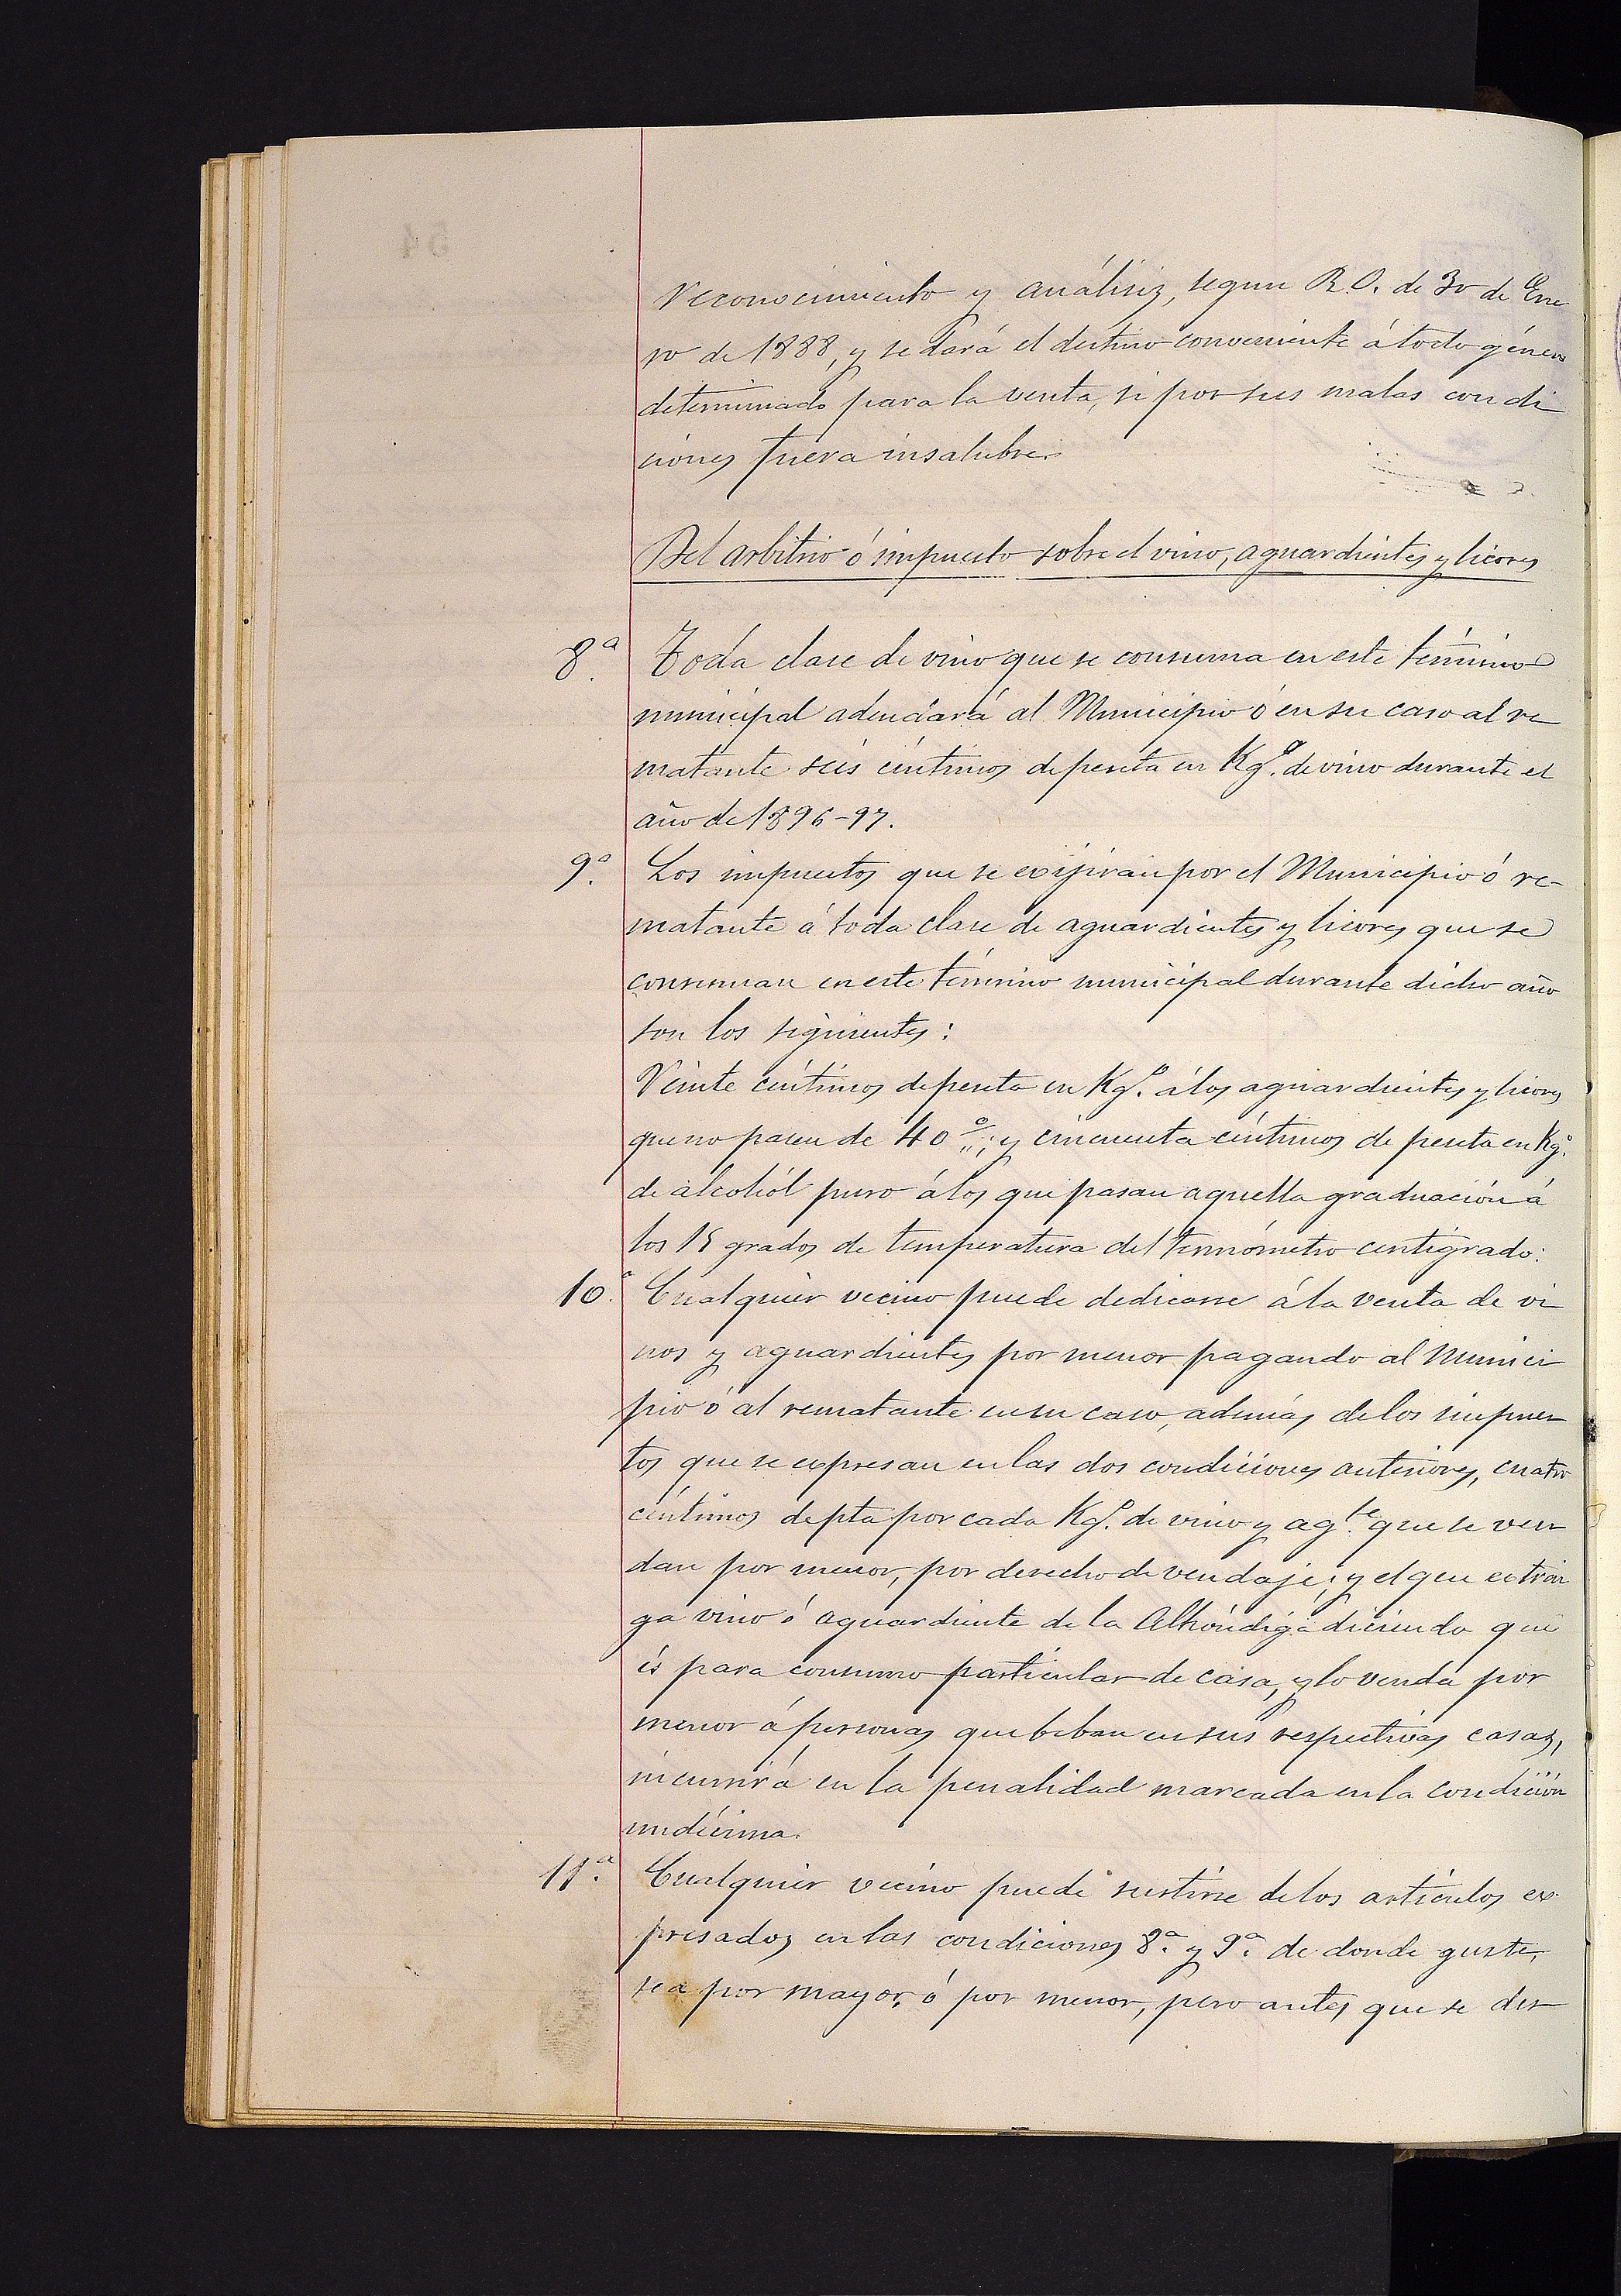 reconocimiento y análisis, segun R.O. de 30 de Ene
ro de 1888, y se dará el destino conveniente á todo género
determinado para la venta, si por sus malas condi
ciones fuera insalubre.
Del arbitrio ó impuesto sobre el vino, aguardientes y licores
8.ª Toda clase de vino que se consuma en este término
municipal adeudará al Municipio ó en su caso al re
matante seis céntimos de peseta en Kg.º de vino durante el
año de 1896-97.
9.ª Los impuestos que se exijirán por el Municipio ó re-
matante á toda clase de aguardientes y licores que se
consuman en este término municipal durante dicho año
son los siguientes:
Veinte céntimos de peseta en Kg.º á los aguardientes y licores
que no pasen de 40 %; y cincuenta céntimos de peseta en Kg.º
de alcohól puro á los que pasan aquella graduación á
los 15 grados de temperatura del termómetro centigrado:
10.ª Cualquier vecino puede dedicarse á la venta de vi
nos y aguardientes por menor pagando al Munici
pio ó al rematante en su caso, además de los impues
tos que se expresan en las dos condiciones anteriores, cuatro
céntimos de pta por cada Kg.º de vino y ag.te que se ven
dan por menor, por derecho de vendaje; y el que extrai
ga vino ó aguardiente de la Alhóndiga diciendo que
és para consumo particular de casa, y lo venda por
menor á personas que beban en sus respectivas casas,
incurrirá en la penalidad marcada en la condición
undécima.
11.ª Cualquier vecino puede surtirse de los artículos ex-
presados en las condiciones 8.ª y 9.ª de donde guste,
sea por mayor, ó por menor, pero antes que se des